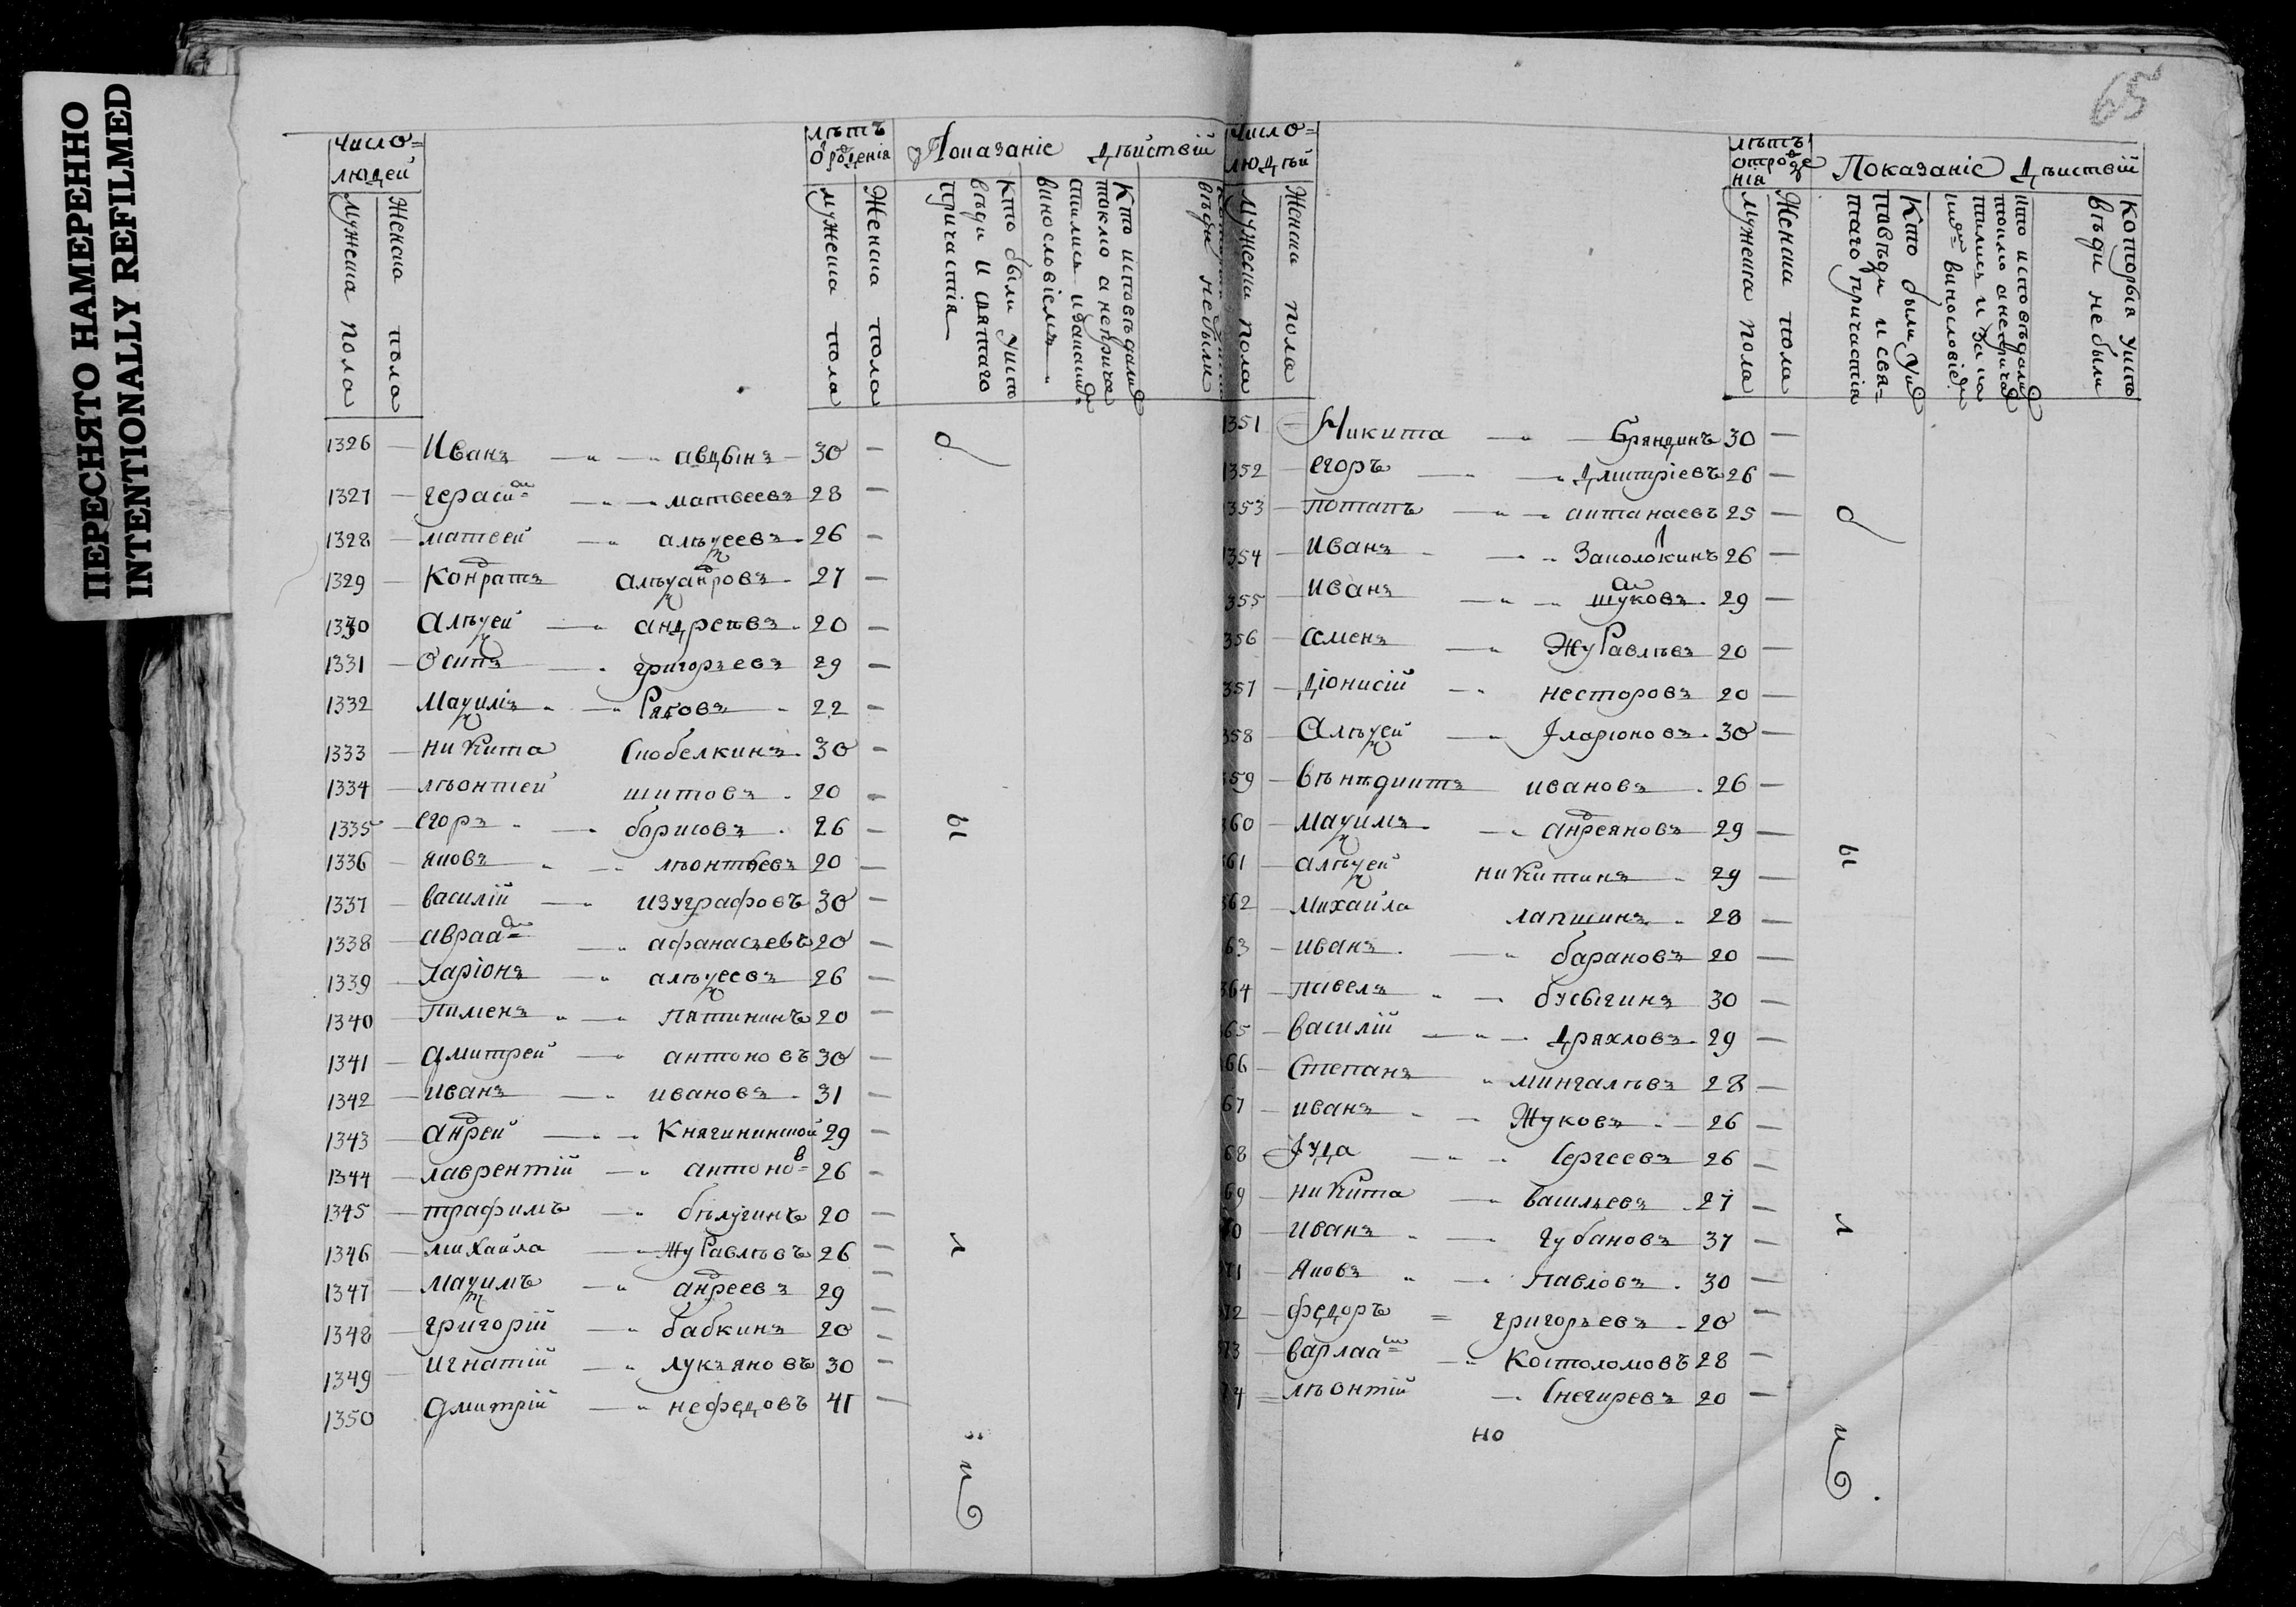 ПЕРЕСНЯТО НАМЕРЕННО
INTENTIONALLY REFILMED
число=
людей
мужеска пола
Женска пола
лѣтъ
Показаніе дѣйствій
мужеска пола
Женска пола
Кто были уиспо
вѣди и святаго
причастія
Кто исповѣдали
токмо а неприча
винословіемъ
вѣди небыли
1326 — Иванъ — авдѣинъ — 30 —
1327 — герасим — матвеевъ 28 —
1328 — матвей — алѣѯеевъ 26 —
1329 — Кондратъ алѣѯандровъ 27 —
1330 алѣѯей — андреѣвъ 20 —
1331 — Осипъ — григорьевъ 29 —
1332 Маѯимъ — Раковъ 22 —
1333 — никита Скобелкинъ 30 —
1334 — лѣонтей шитовъ 20 —
1335 — егоръ — борисовъ 26 —
1336 — яковъ — лѣонтьевъ 20 —
1337 — василій — изуграфовъ 30 —
1338 — авраам — афанасьевъ 20 —
1339 — ларіонъ — алѣѯеевъ 26 —
1340 — Пименъ — Пятининъ 20 —
1341 — дмитрей — антоновъ 30 —
1342 — иванъ — ивановъ 31 —
1343 — андрей — Княгининской 29 —
1344 — лаврентій — антонов 26 —
1345 — трафимъ — бѣлугинъ 20 —
1346 — михайла — жуРавлѣвъ 26 —
1347 — маѯимъ — андреевъ 29 —
1348 — григорій — бабкинъ 20 —
1349 — игнатій — лукьяновъ 30 —
1350 дмитрій — нефедовъ 41 —
б
ы
л
и
65
число=
людѣй
мужеска пола
Женска пола
лѣтъ
отрожде
нія
Показаніе Дѣиствій
мужеска пола
Женска пола
Кто были уис
павѣди и свя=
таго причастія
кто исповѣдали
токмо анеприча
Которыя уиспо
вѣди небыли
1351 — Никита — брандинъ 30 —
1352 — егоръ — дмитріевъ 26 —
1353 — потапъ — антанаевъ 25 —
1354 — иванъ — Заколокинъ 26 —
355 — иванъ — 29 —
356 — семенъ — ЖуРавлѣвъ 20 —
357 — діонисій — несторовъ 20 —
358 — Алѣѯей — Іларіоновъ 30 —
359 — вѣнѣдиктъ ивановъ 26 —
360 — маѯимъ — андреяновъ 29 —
361 — алѣѯей никитинъ 29 —
362 — михайла лапшинъ 28 —
63 — иванъ — барановъ 20 —
364 — павелъ — бусыгинъ 30 —
365 — василій — дряхловъ 29 —
66 — Степанъ мингалѣвъ 28 —
67 — иванъ — Жуковъ 26 —
68 — Іуда — Сергеевъ 26 —
69 — никита — васильевъ 27 —
70 — иванъ — губановъ 37 —
71 — яковъ — Павловъ 30 —
72 — федоръ = григорьевъ 20 —
73 — варлаам — Костоломовъ 28 —
74 = лѣонтій — Снегиревъ 20 —
но
б
ы
л
и